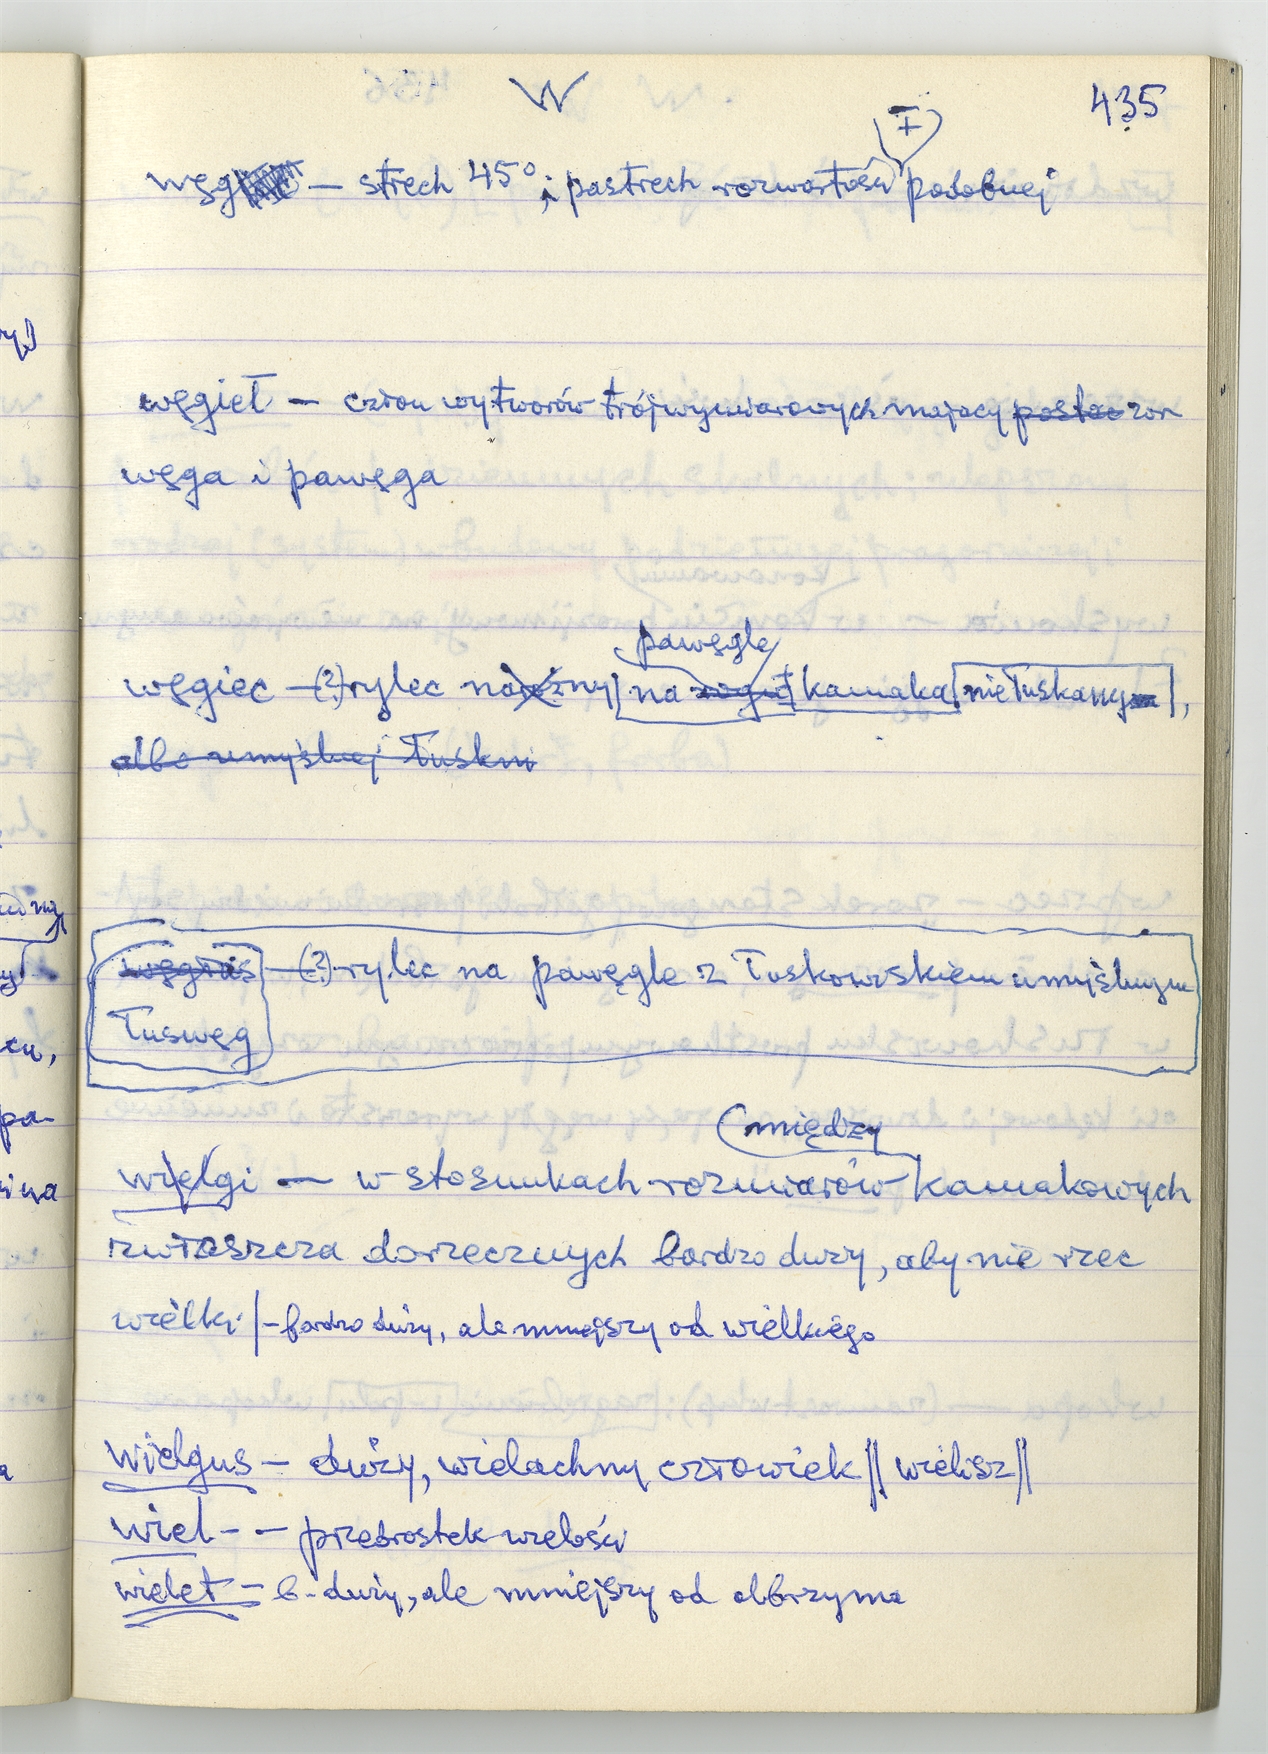 W
435
węg — strech 45°; pastrech rozwartości ± podobnej
węgieł — człon wytworów trójwymiarowych mający postać zar
węga i pawęga
pawęgle
węgiec — (?) rylec narożny na kamaka nie łuskany,
albo umyślnej łuskni
węgłaś — (?) rylec na pawęgle z łuskowskiem umyślnym
łuswęg
między
wielgi — w stosunkach rozmiarów kamakowych
zwłaszcza dorzecznych bardzo duży, aby nie rzec
wielki | – bardzo duży, ale mniejszy od wielkiego
wielgus — duży, wielachny człowiek || wielisz ||
wiel- — przedrostek wielości
wielet — b. duży, ale mniejszy od olbrzyma